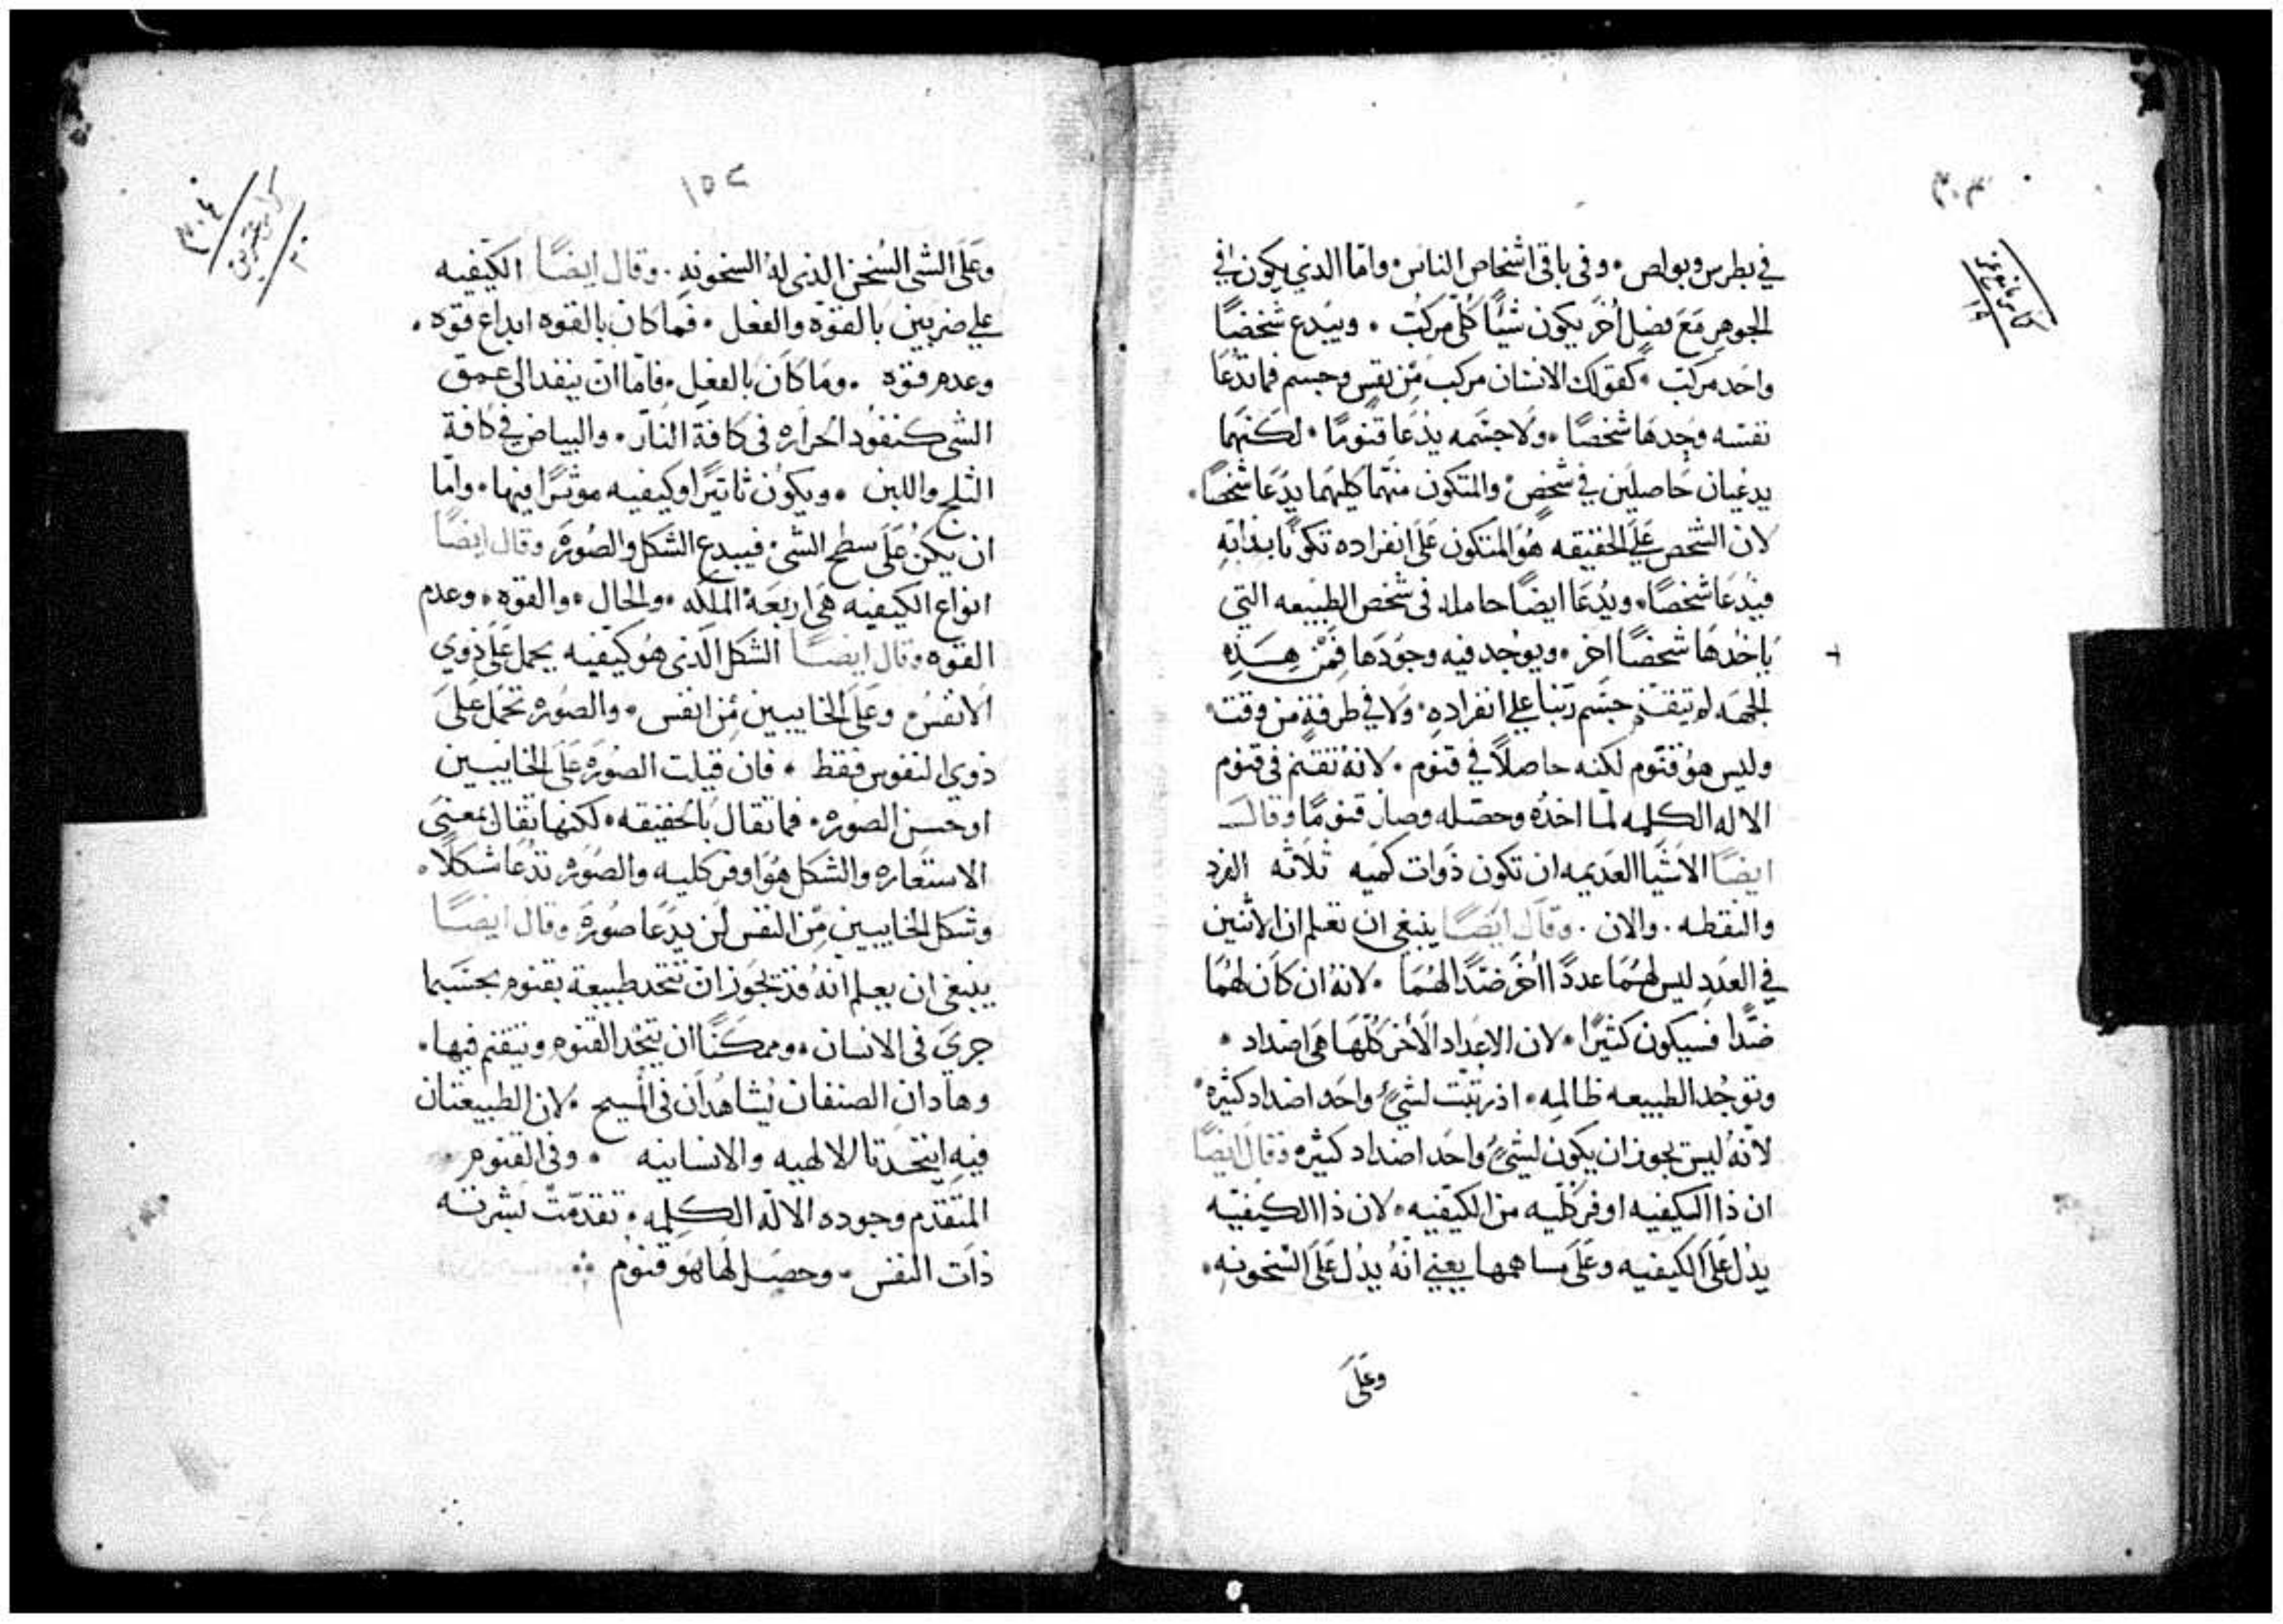 ٣٠٣
في بطرس وبولص • وفي باقي اشخاص الناس • واما الذي يكون في
الجوهر مَعَ فصلٍ اخر يكون شيئًا كلّي مركبٌ • ويبدع شخصًا
واحد مركبٌ • كقولك الانسان مركب مّن نفسٍ وجسم فما تدُعَا
نفسه وحدهَا شخصًا • ولا جسَمه يدُعَا قنومًا • لكنهما
يدعيان حَاصلين في شخصٍ • والمتكون منهما كليهما يدّعَا شخصًا •
لان الشخص عَلَى الحقيقه هُوَ المتكون عَلَى انفراده تكونًا بذاته
فيُدعَا شخصًا • ويُدُعَا ايضًا حامله في شخص الطبيعه التي
يَاخدُهَا شخصًا اخر • ويوجد فيه وجوُدَها فمَنْ هِـَـذِه
الجهَه لم يتقنم جسّم ربّنا علي انفراده • وَلا في طرفةٍ من وقت •
وليس هوُ قنوم لكنه حاصلًا في قنوم • لانهُ تقنم في قنوم
الاله الكلمه لما اخدُه وحصّله وصار قنومًا وقالــ
ايضًا الاشَيا العَديمه ان تكون ذَوات كمَيه ثلاثه الفرد
والنقطه • والان • وقال ايضًا ينبغي ان تعلم ان الاثنين
في العدَدِ ليس لهمَا عددًا اخرَ ضدًا لهُمَا • لانهُ ان كَان لهُمَا
ضدًا فسيكون كثيرًا • لان الاعدَاد الاخر كلّهَا هَي اضداد •
وتوجُد الطبيعه ظالمه • اذ رتبّت لشيٍ واحَد اضداد كثيره •
لانّهُ ليسَ يجوز ان يكَون لشيٍ واحَد اضداد كثيره وقال ايضًا
ان ذا الكيفيه اوفر كلّيه من الكيفيه • لان ذا الكيفيّه
يدُل عَلَى الكيفيه وعَلَى مساهمها يعني انّهُ يدُل عَلَى السّخونه •
وعَلَى
٣٠٤
١٥٢
وعَلَى الشي السُخن الذي لهُ السخونه • وقال ايضًا الكيفيه
علي ضربين بالقوّه والفعل • فما كان بالقوه ابداع قوّه •
وعدم قوّه • ومَا كَان بالفعِل • فامّا ان ينفد الى عمق
الشي كنفوُد الحرَاره في كافة النار • والبياض في كافة
الثلج واللبن • ويكوُن ثاتيرًا وكيفيه موثرًا فيها • وامّا
ان يكنُ عَلَى سطح الشي • فيبدع الشكل والصُورَه وقال ايضًا
انواع الكيفيه هَي اربعَهْ الملَكه • والحَال • والقوه • وعدم
القوه وقال ايضـًـا الشكل الذي هوُ كيفيه يحمل عَلَى ذوي
الانفسُ • وعَلَى الخايبين مُن انفس • والصُوره تحمل عَلَى
ذوي النفوس فقط • فان قيلت الصُورَه عَلَى الخايبيين
او حسَن الصُوره • فما تقال بالحقيقه • لكنها تقال بمعنَي
الاستعَاره والشكل هوَ اوفر كليه والصُورَه تدُعَا شكلًا •
وشكل الخايبيين مّن النفس لن يدَعَا صُورَه وقال ايضـًـا
ينبغي ان يعلم انهُ قد تجوَز ان تتحد طبيعة بقنوم بحسَبما
جرَيَ في الانسان • وممكنًا ان يتخُد القنوم وتتقنم فيها •
وهاَدان الصنفان يُشاهدَان في المسيح • لان الطبيعتان
فيهِ ايتحدَتا الالهيه والانسانيه • وفي القنوم •
المتقدّم وجوده الاله الكلمه • تقدمّت بَشرته
ذاَت النفس • وحصَل لهَا هَو قنوُم ••